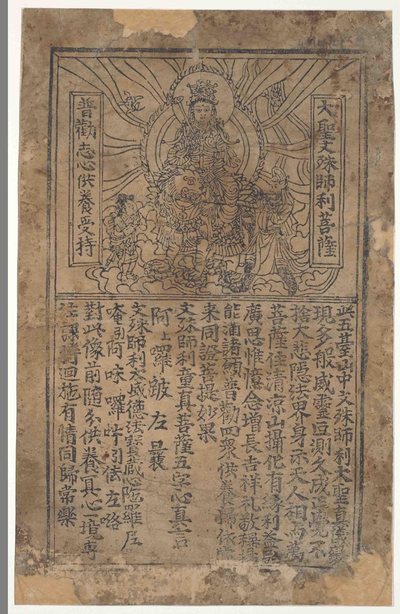 大聖文殊師利菩薩
普勸志心供養受持
此五臺山中文殊師利大聖真儀
現多般威靈叵測久成正覺不
捨大悲隱法界身示天人相与万
菩薩住清凉山攝化有緣利益
廣思惟憶念增長吉祥禮敬稱揚
能滿諸願普勸四衆供養歸依
來同證菩提妙果
文殊師利童真菩薩五字心真言
阿上囉跛左曩
文殊師利大威德法寶藏心陁羅尼
唵引阿味囉𤙖引佉左咯
對此像前隨分供養冥心一境專
注課持迴施有情同歸常樂